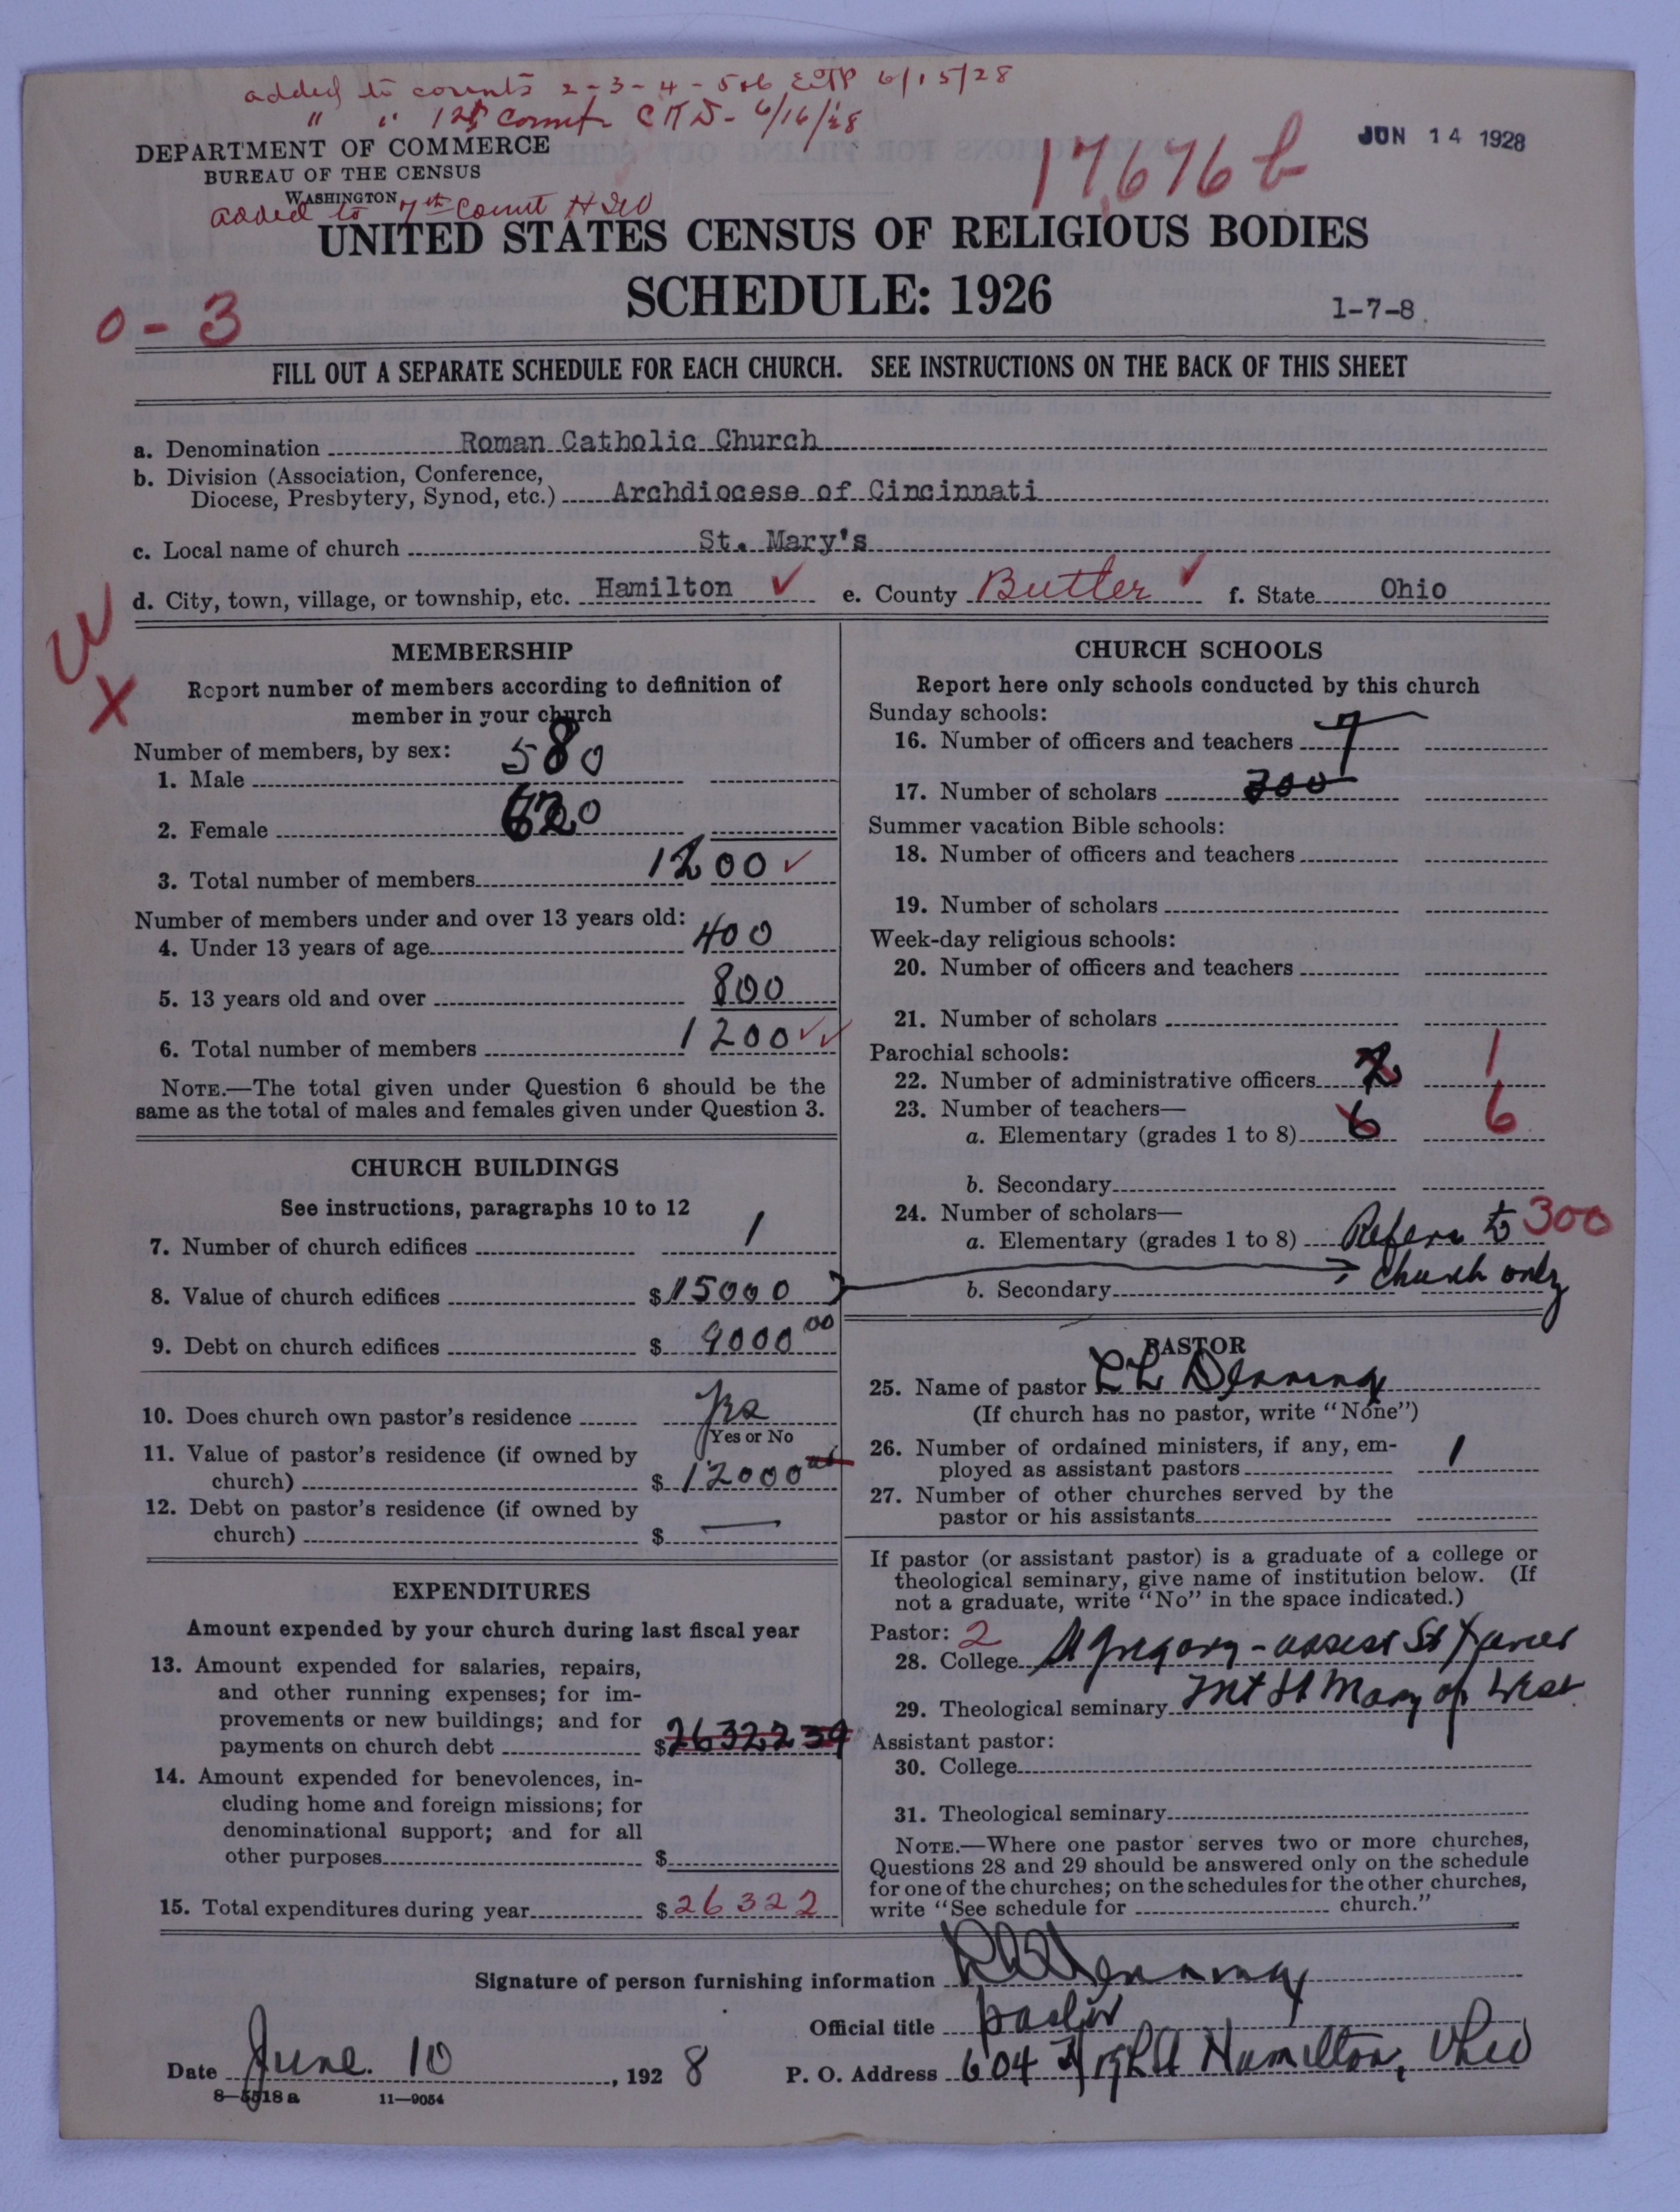 added to counts 2-3-4-5+6 6/15/28
" " 1st Count 6/16/28
DEPARTMENT OF COMMERCE
BUREAU OF THE CENSUS
WASHINGTON
added to 7th Count
17676 b
JUN 14 1928
UNITED STATES CENSUS OF RELIGIOUS BODIES
SCHEDULE: 1926
1-7-8.
0-3
FILL OUT A SEPARATE SCHEDULE FOR EACH CHURCH. SEE INSTRUCTIONS ON THE BACK OF THIS SHEET
a. Denomination Roman Catholic Church
b. Division (Association, Conference,
Diocese, Presbytery, Synod, etc.) Archdiocese of Cincinnati
c. Local name of church St. Mary's
d. City, town, village, or township, etc. Hamilton ✓ e. County Butler ✓ f. State Ohio
W
X
MEMBERSHIP
Report number of members according to definition of
member in your church
Number of members, by sex:
1. Male 580
2. Female 620
3. Total number of members 1200 ✓
Number of members under and over 13 years old:
4. Under 13 years of age 400
5. 13 years old and over 800
6. Total number of members 1200 ✓✓
NOTE.—The total given under Question 6 should be the
same as the total of males and females given under Question 3.
CHURCH BUILDINGS
See instructions, paragraphs 10 to 12
7. Number of church edifices 1
8. Value of church edifices $15000
9. Debt on church edifices $ 9000 00
10. Does church own pastor's residence Yes
Yes or No
11. Value of pastor's residence (if owned by
church) $ 12000
12. Debt on pastor's residence (if owned by
church) $ —
EXPENDITURES
Amount expended by your church during last fiscal year
13. Amount expended for salaries, repairs,
and other running expenses; for im-
provements or new buildings; and for
payments on church debt $26322 39
14. Amount expended for benevolences, in-
cluding home and foreign missions; for
denominational support; and for all
other purposes $
15. Total expenditures during year $26322
CHURCH SCHOOLS
Report here only schools conducted by this church
Sunday schools:
16. Number of officers and teachers 7
17. Number of scholars 300
Summer vacation Bible schools:
18. Number of officers and teachers
19. Number of scholars
Week-day religious schools:
20. Number of officers and teachers
21. Number of scholars
Parochial schools:
22. Number of administrative officers 1
23. Number of teachers—
a. Elementary (grades 1 to 8) 6 6
b. Secondary
24. Number of scholars—
a. Elementary (grades 1 to 8) Refers to 300
b. Secondary church only
PASTOR
25. Name of pastor Denning
(If church has no pastor, write "None")
26. Number of ordained ministers, if any, em-
ployed as assistant pastors 1
27. Number of other churches served by the
pastor or his assistants
If pastor (or assistant pastor) is a graduate of a college or
theological seminary, give name of institution below. (If
not a graduate, write "No" in the space indicated.)
Pastor: 2
28. College St Gregory - assist St Xavier
29. Theological seminary Mt St Mary of West
Assistant pastor:
30. College
31. Theological seminary
NOTE.—Where one pastor serves two or more churches,
Questions 28 and 29 should be answered only on the schedule
for one of the churches; on the schedules for the other churches,
write "See schedule for church."
Signature of person furnishing information Denning
Official title pastor
Date June 10, 1928 P. O. Address 604 Hamilton, Ohio
8—5518a 11—9054